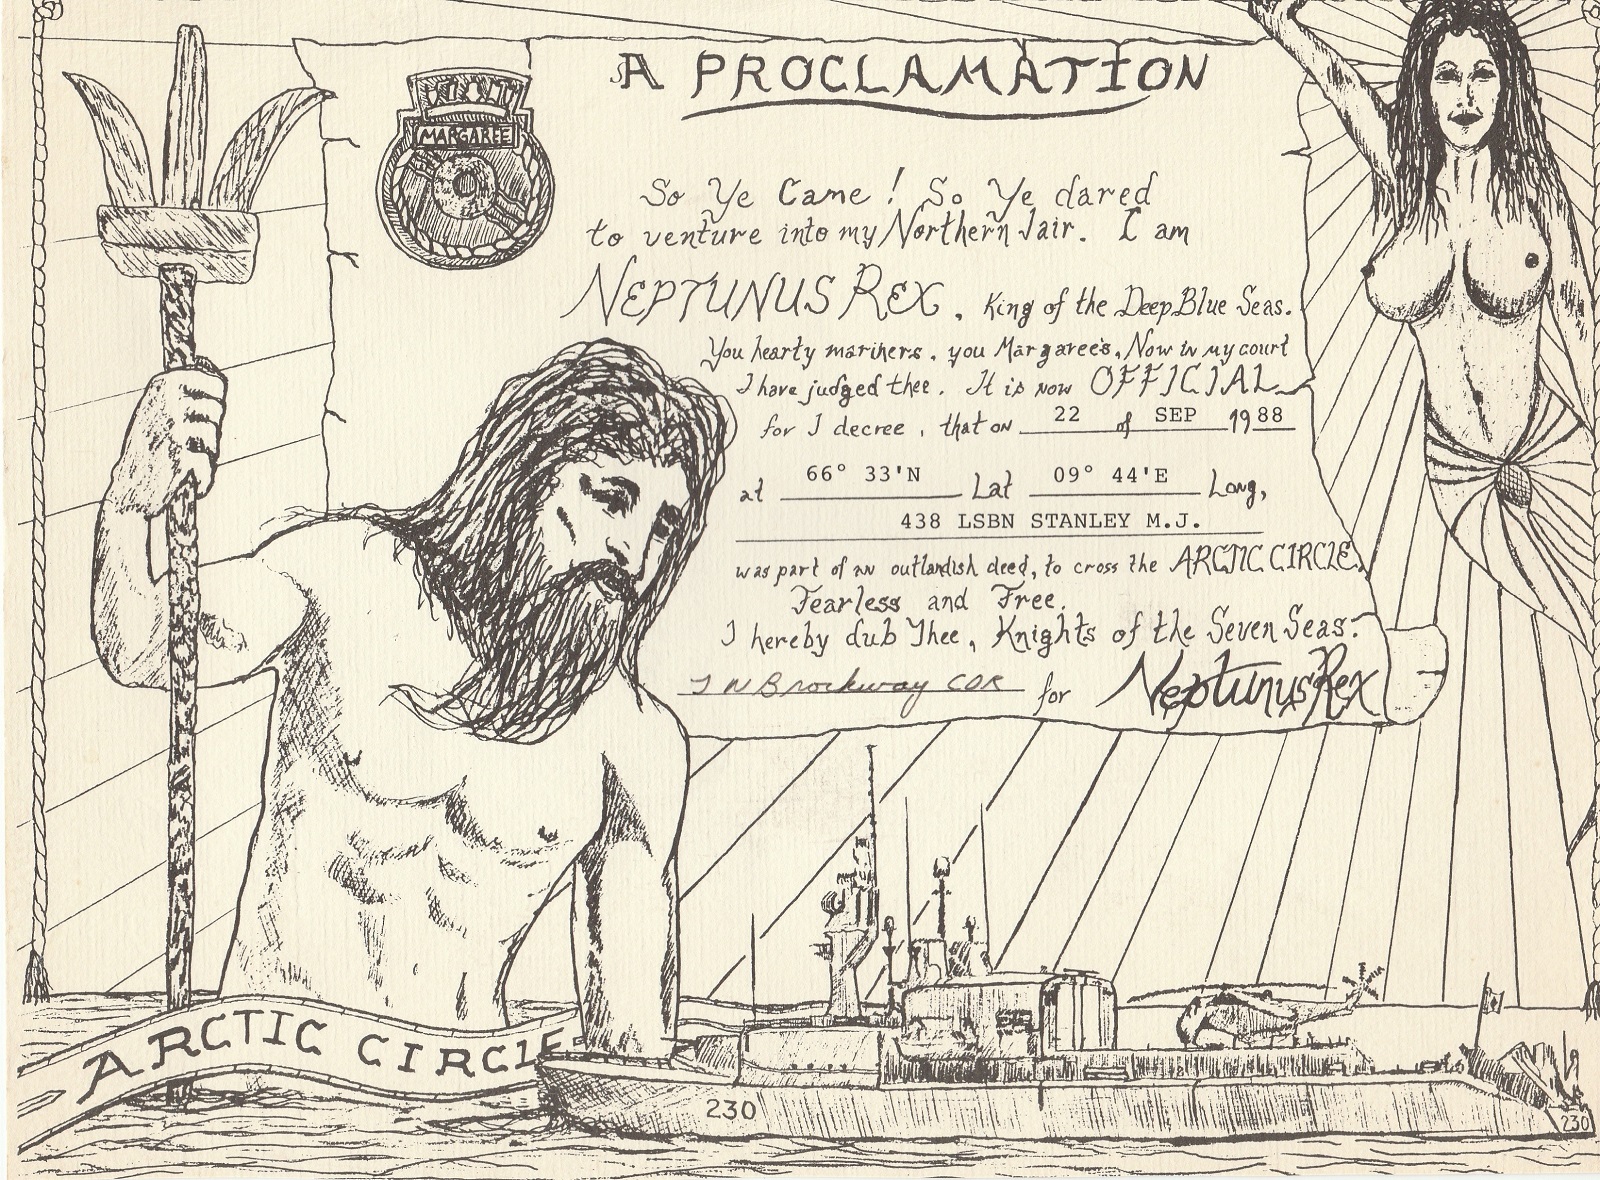 A PROCLAMATION
MARGAREE
So Ye Came! So Ye dared
to venture into my Northern lair. I am
NEPTUNUS REX, King of the Deep Blue Seas.
You hearty mariners, you Margaree's, Now in my court
I have judged thee. It is now OFFICIAL
for I decree, that on 22 of SEP 1988
at 66° 33'N Lat 09° 44'E Long,
438 LSBN STANLEY M.J.
was part of an outlandish deed, to cross the ARCTIC CIRCLE,
Fearless and Free.
I hereby dub Thee, Knights of the Seven Seas.
J N Brockway CDR for Neptunus Rex
ARCTIC CIRCLE
230
230